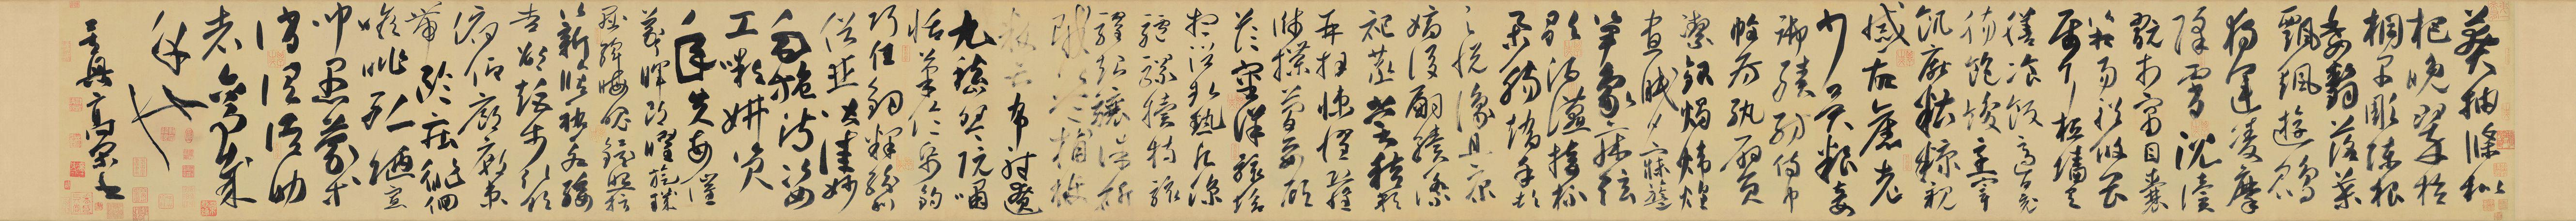 莽抽條枇
杷晚翠梧
桐早彫陳根
委翳落葉
飄颻遊鵾
獨運凌摩
絳霄耽讀
翫市寓目囊
箱易輶攸畏
屬耳垣牆具
膳飡飯適口充
腸飽飫烹宰
飢厭糟糠親
戚故舊老
少異糧妾
御績紡侍巾
帷房紈扇員
潔銀燭煒煌
晝眠夕寐籃
笋象床弦
歌酒讌接杯
舉觴矯手頓
足悅豫且康
嫡後嗣續祭
祀蒸嘗稽顙
再拜悚懼恐惶
牋牒簡要顧
答審詳骸垢
想浴執熱願涼
驢騾犢特駭
躍超驤誅斬
賊盜捕獲
叛亡布射遼
丸嵇琴阮嘯
恬筆倫紙鈞
巧任釣釋紛利
俗並皆佳妙
毛施淑姿
工嚬妍笑
年矢每催
曦暉朗曜旋璣
懸斡晦魄環照指
薪脩祜永綏
吉劭矩步引領
俯仰廊廟束
帶矜莊徘徊
瞻眺孤陋寡
聞愚蒙等
誚謂語助
者焉哉
乎也
吳興